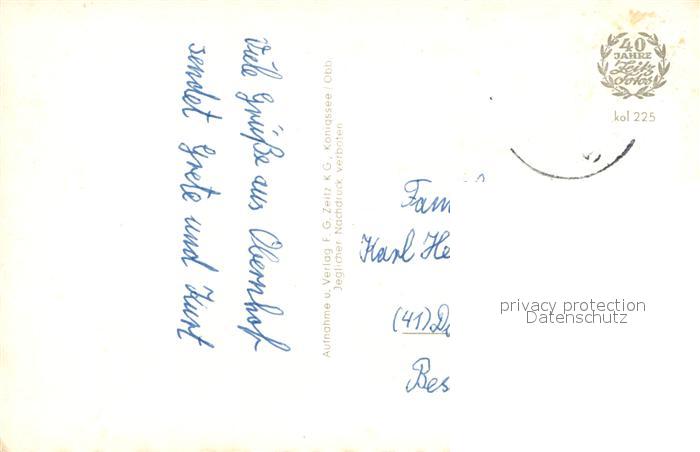 Viele Grüße aus Obernhof
sendet Grete und Kurt
Aufnahme u. Verlag F. G. Zeitz K G., Königssee / Obb.
Jeglicher Nachdruck verboten
40
JAHRE
Zeitz
Fotos
kol 225
Fam
Karl He
(41) D
Bes
privacy protection
Datenschutz